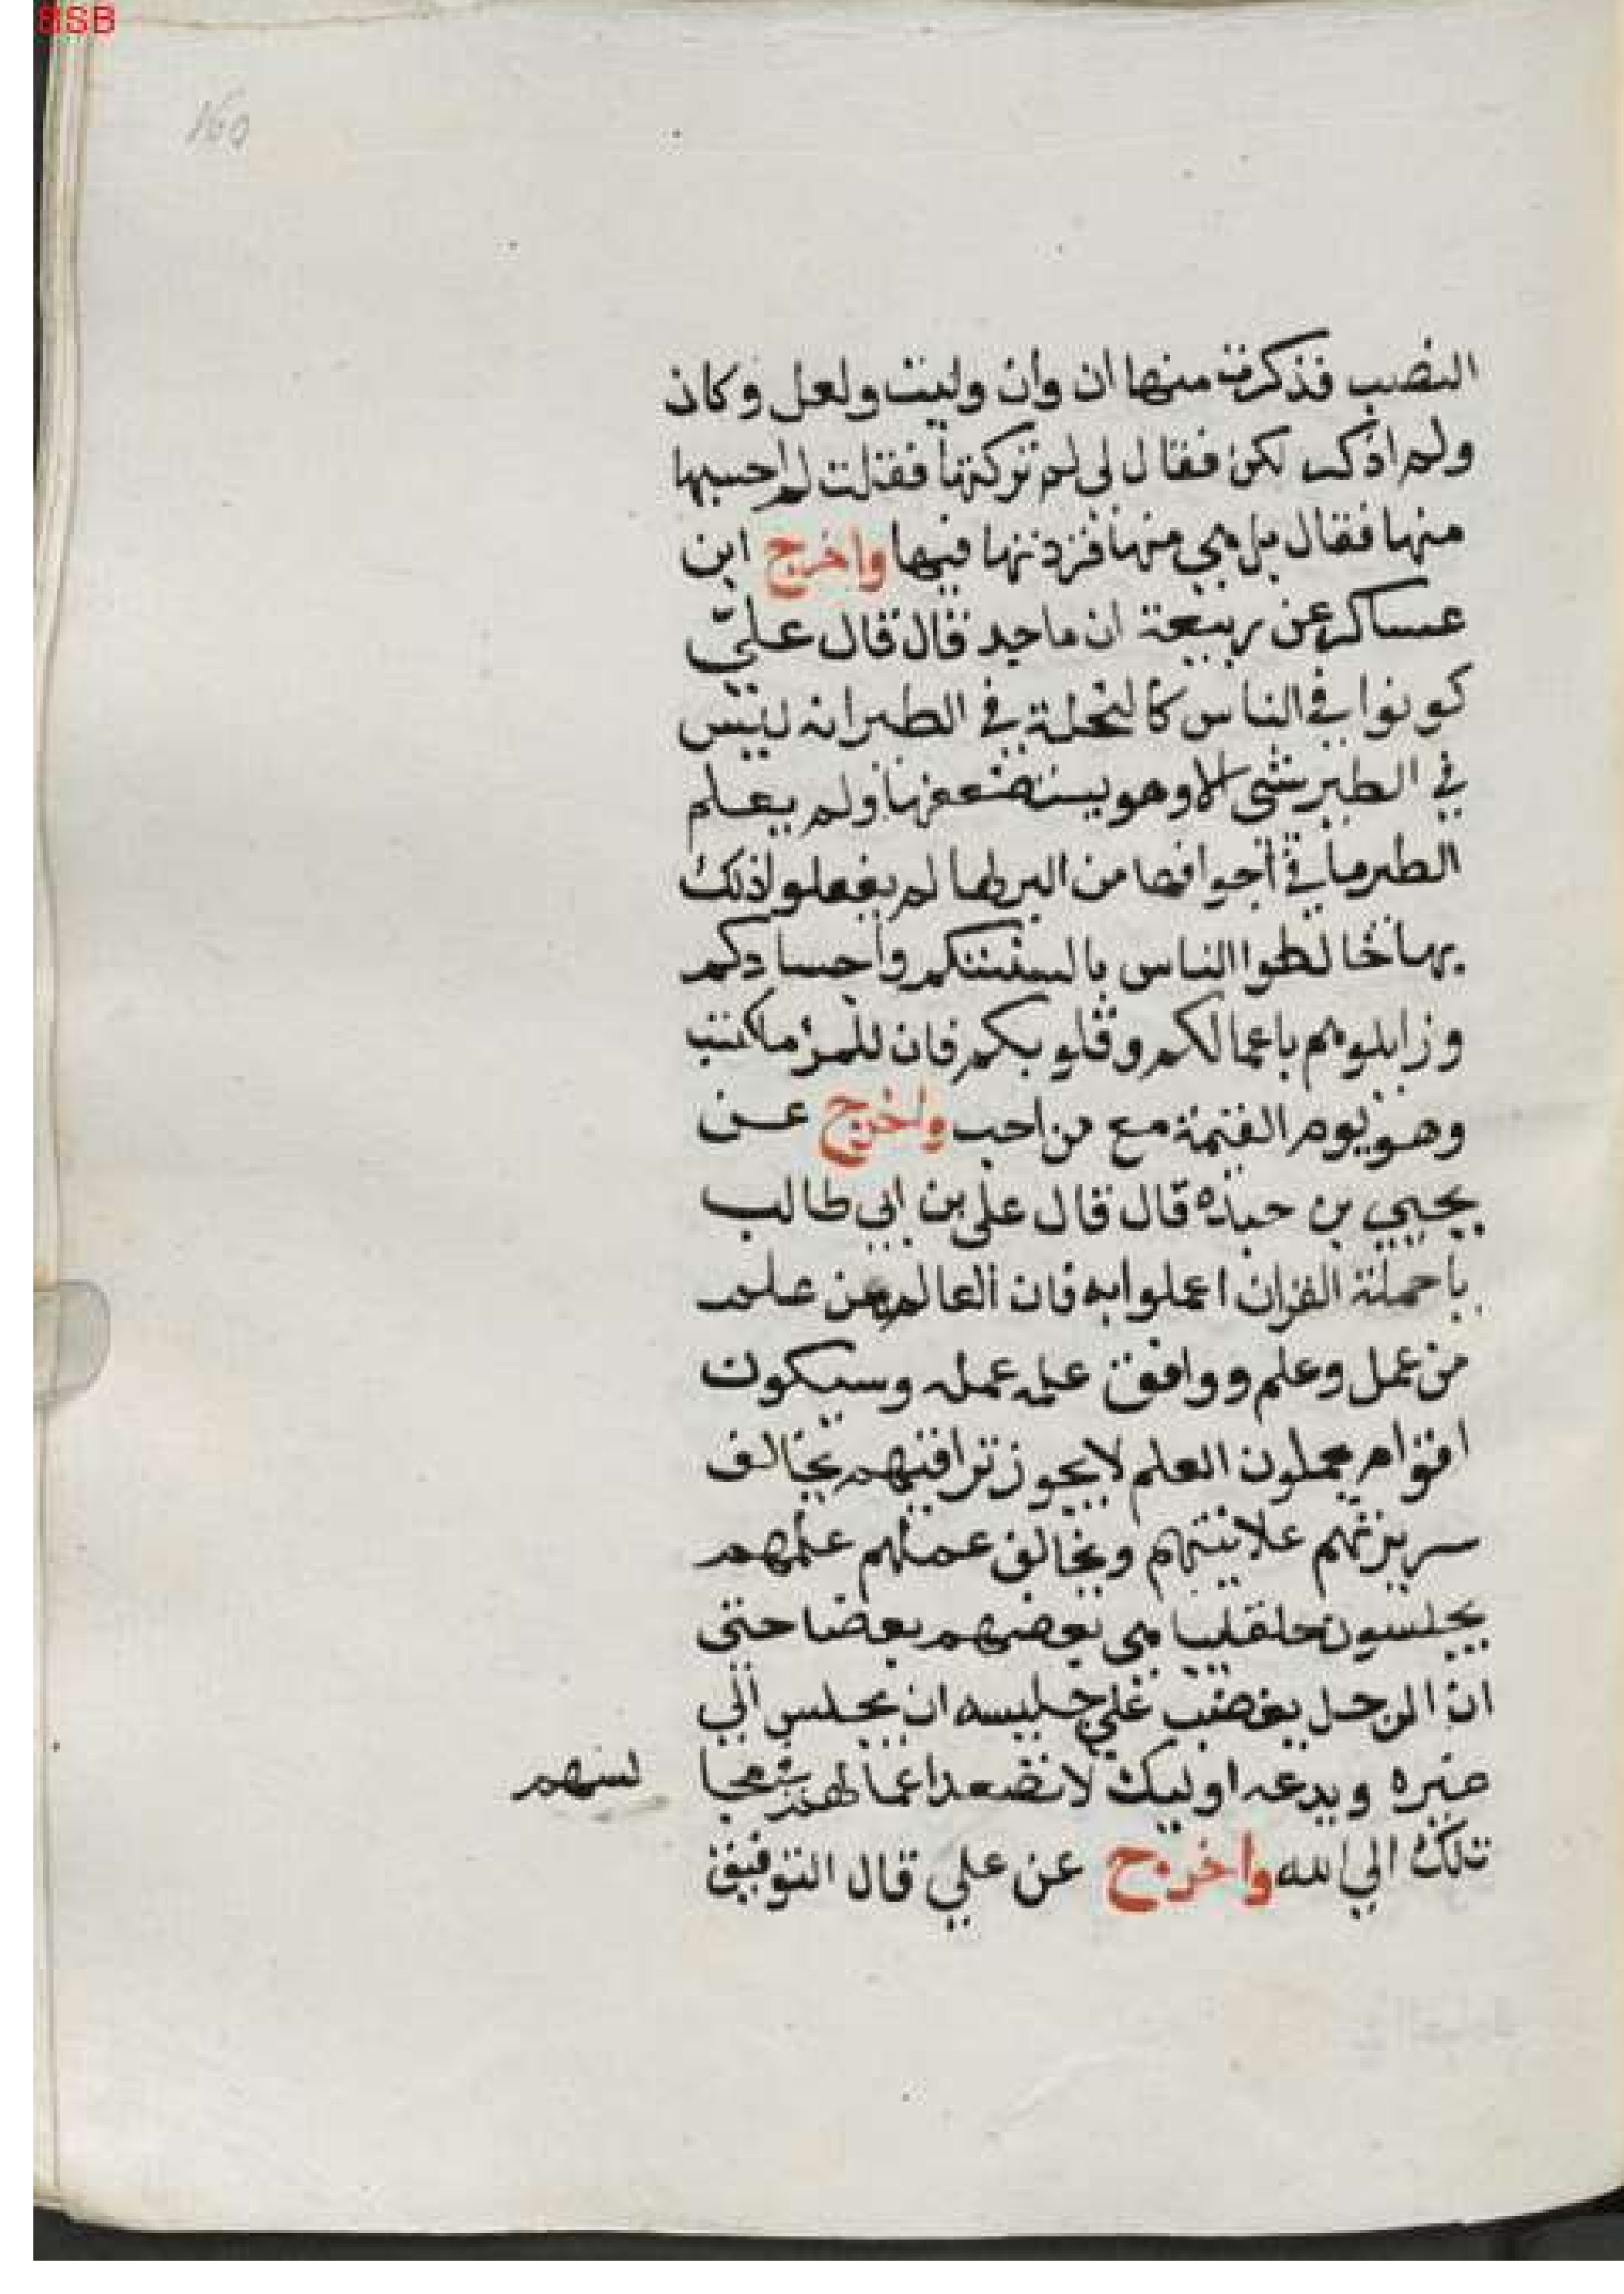 BSB
160
النصب فذكرت منها ان وان وليت ولعل وكان
ولم اذكر لكن فقال لي لم تركتها فقلت لم احسبها
منها فقال بل هي منها فزدتها فيها واخرج ابن
عساكر عن ربيعة ان ماجد قال قال علي
كونوا في الناس كالنحلة في الطير انه ليس
في الطير شي الا وهو يستضعفها ولم يعلم
الطير ما في اجوافها من البر لما لم يفعلوا ذلك
بها خالطوا الناس بالسنتكم واجسادكم
وزايلوهم باعمالكم وقلوبكم فان للمرؤ ما كتب
وهو يوم القيمة مع من احب واخرج عن
يحيي بن قال قال علي بن ابي طالب
ياحملة القران اعملوا به فان العالم من علم
من عمل وعلم ووافق علمه عمله وسيكون
اقوام يحملون العلم لا يجوز تراقيهم يخالف
سريرتهم علانيتهم ويخالف عملهم علمهم
يجلسون حلقا يباهي بعضهم بعضا حتى
ان الرجل يغضب علي جليسه ان يجلس الي
غيره ويدعه اوليك لا تصعد اعمالهم مجا لسهم
تلك الي الله واخرج عن علي قال التوفيق